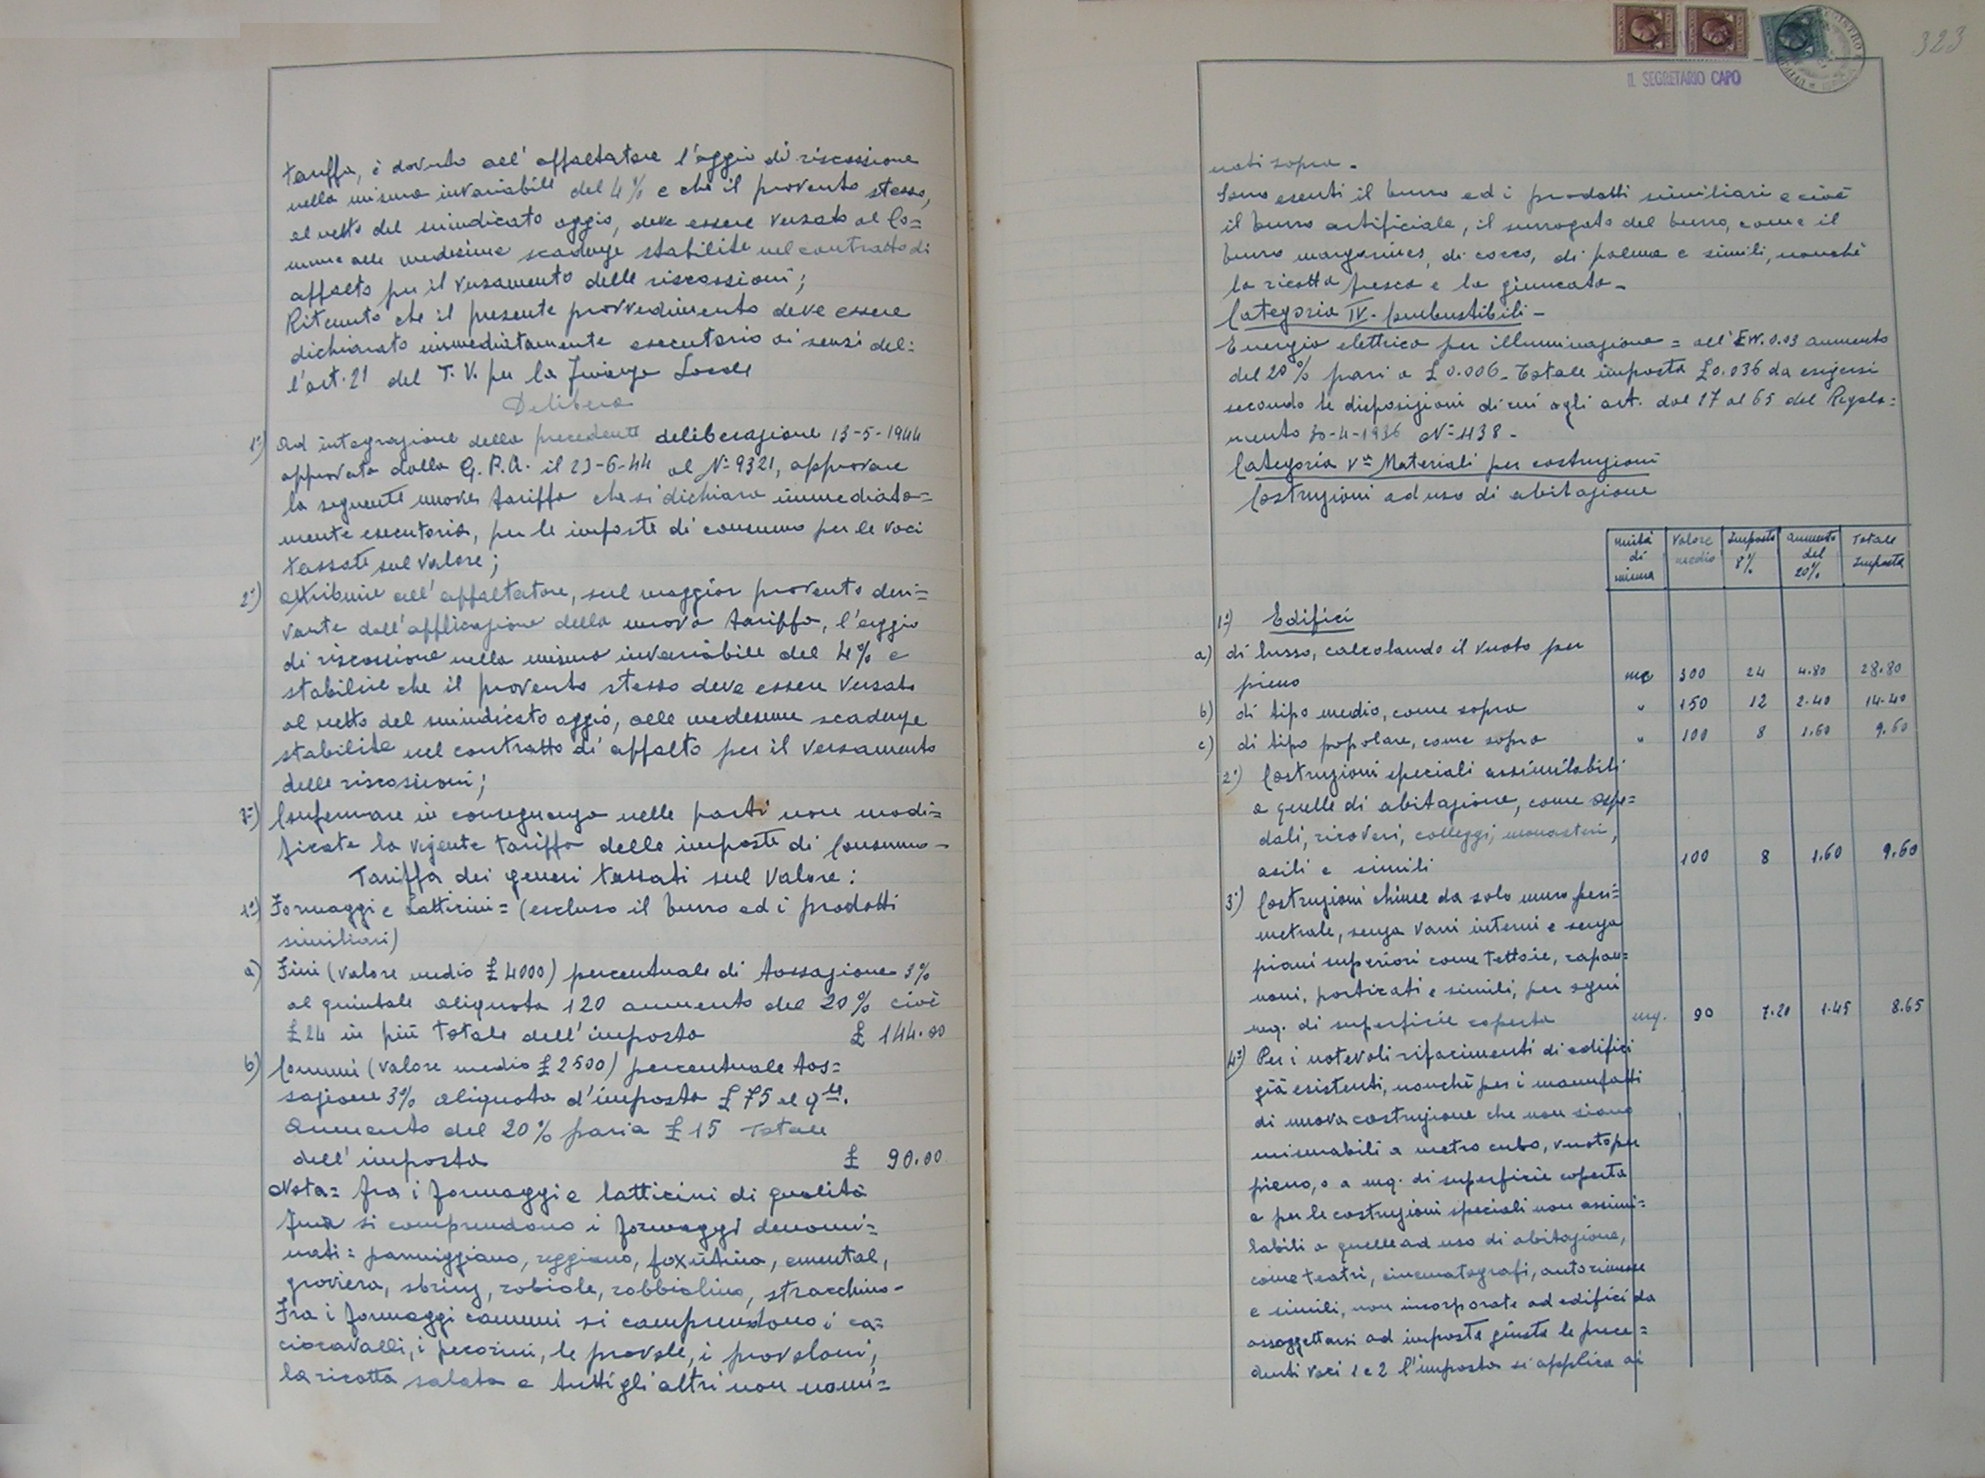 tariffa, è dovuto all'appaltatore l'aggio di riscossione
nella misura invariabile del 4% e che il provento stesso,
al netto del suindicato aggio, deve essere versato al Co=
mune alle medesime scadenze stabilite nel contratto di
appalto per il versamento delle riscossioni;
Ritenuto che il presente provvedimento deve essere
dichiarato immediatamente esecutorio ai sensi del=
l'art. 21 del T.V. per la Finanza Locale
Delibera
1°) Ad integrazione della precedente deliberazione 13-5-1944
approvata dalla G.P.A. il 23-6-44 al N° 9321, approvare
la seguente nuova tariffa che si dichiara immediata=
mente esecutoria, per le imposte di consumo per le voci
tassate sul valore;
2°) attribuire all'appaltatore, sul maggior provento deri=
vante dall'applicazione della nuova tariffa, l'aggio
di riscossione nella misura invariabile del 4% e
stabilire che il provento stesso deve essere versato
al netto del suindicato aggio, alle medesime scadenze
stabilite nel contratto di appalto per il versamento
delle riscossioni;
3°) Confermare in conseguenza nelle parti non modi=
ficate la vigente tariffa delle imposte di Consumo-
Tariffa dei generi tassati sul Valore:
1°) Formaggi e Latticini= (escluso il burro ed i prodotti
similiari)
a) Fini (valore medio £ 4000) percentuale di tassazione 3%
al quintale aliquota 120 aumento del 20% cioè
£ 24 in più Totale dell'imposta £ 144.00
b) Comuni (valore medio £ 2500) percentuale tas=
sazione 3% aliquota d'imposta £ 75 al q.le.
Aumento del 20% pari a £ 15 Totale
dell'imposta £ 90.00
Nota= fra i formaggi e latticini di qualità
fina si comprendono i formaggi denomi=
nati= parmiggiano, reggiano, fontina, emental,
groviera, sbrinz, robiole, robbiolino, stracchino-
Fra i formaggi comuni si comprendono i ca=
ciocavalli, i pecorini, le provole, i provoloni,
la ricotta salata e tutti gli altri non nomi=
IL SEGRETARIO CAPO
323
nati sopra-
Sono esenti il burro ed i prodotti similiari e cioè
il burro artificiale, il surrogato del burro, come il
burro margarines, di cocco, di palma e simili, nonchè
la ricotta fresca e la giuncata-
Categoria IV- Combustibili-
Energia elettrica per illuminazione= all'EW. 0.03 aumento
del 20% pari a £ 0.006- Totale imposta £ 0.036 da esigersi
secondo le disposizioni di cui agli art. dal 17 al 65 del Regola=
mento 30-4-1936 N° 1138-
Categoria Vª Materiali per costruzioni
Costruzioni ad uso di abitazione
unità di misura | Valore medio | Imposta 8% | aumento del 20% | Totale Imposta
1°) Edifici
a) di lusso, calcolando il vuoto per
pieno mc 300 24 4.80 28.80
b) di tipo medio, come sopra " 150 12 2.40 14.40
c) di tipo popolare, come sopra " 100 8 1.60 9.60
2°) Costruzioni speciali assimilabili
a quelle di abitazione, come ospe=
dali, ricoveri, colleggi, monasteri,
asili e simili 100 8 1.60 9.60
3°) Costruzioni chiuse da solo muro peri=
metrale, senza vani interni e senza
piani superiori come tettoie, capan=
noni, porticati e simili, per ogni
mq. di superficie coperta mq. 90 7.20 1.45 8.65
4°) Per i notevoli rifacimenti di edifici
già esistenti, nonchè per i manufatti
di nuova costruzione che non siano
misurabili a metro cubo, vuoto per
pieno, o a mq. di superficie coperta
e per le costruzioni speciali non assimi=
labili a quelle ad uso di abitazione,
come teatri, cinematografi, autorimesse
e simili, non incorporate ad edifici da
assoggettarsi ad imposta giusta le prece=
denti voci 1 e 2 l'imposta si applica ai